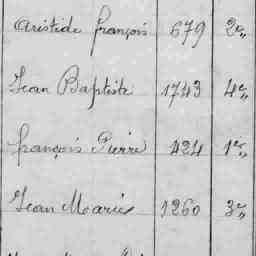 Aristide françois 679 2e,,
Jean Baptiste 1743 4e,,
françois Pierre 424 1er,,
Jean Marie 1260 3e,,